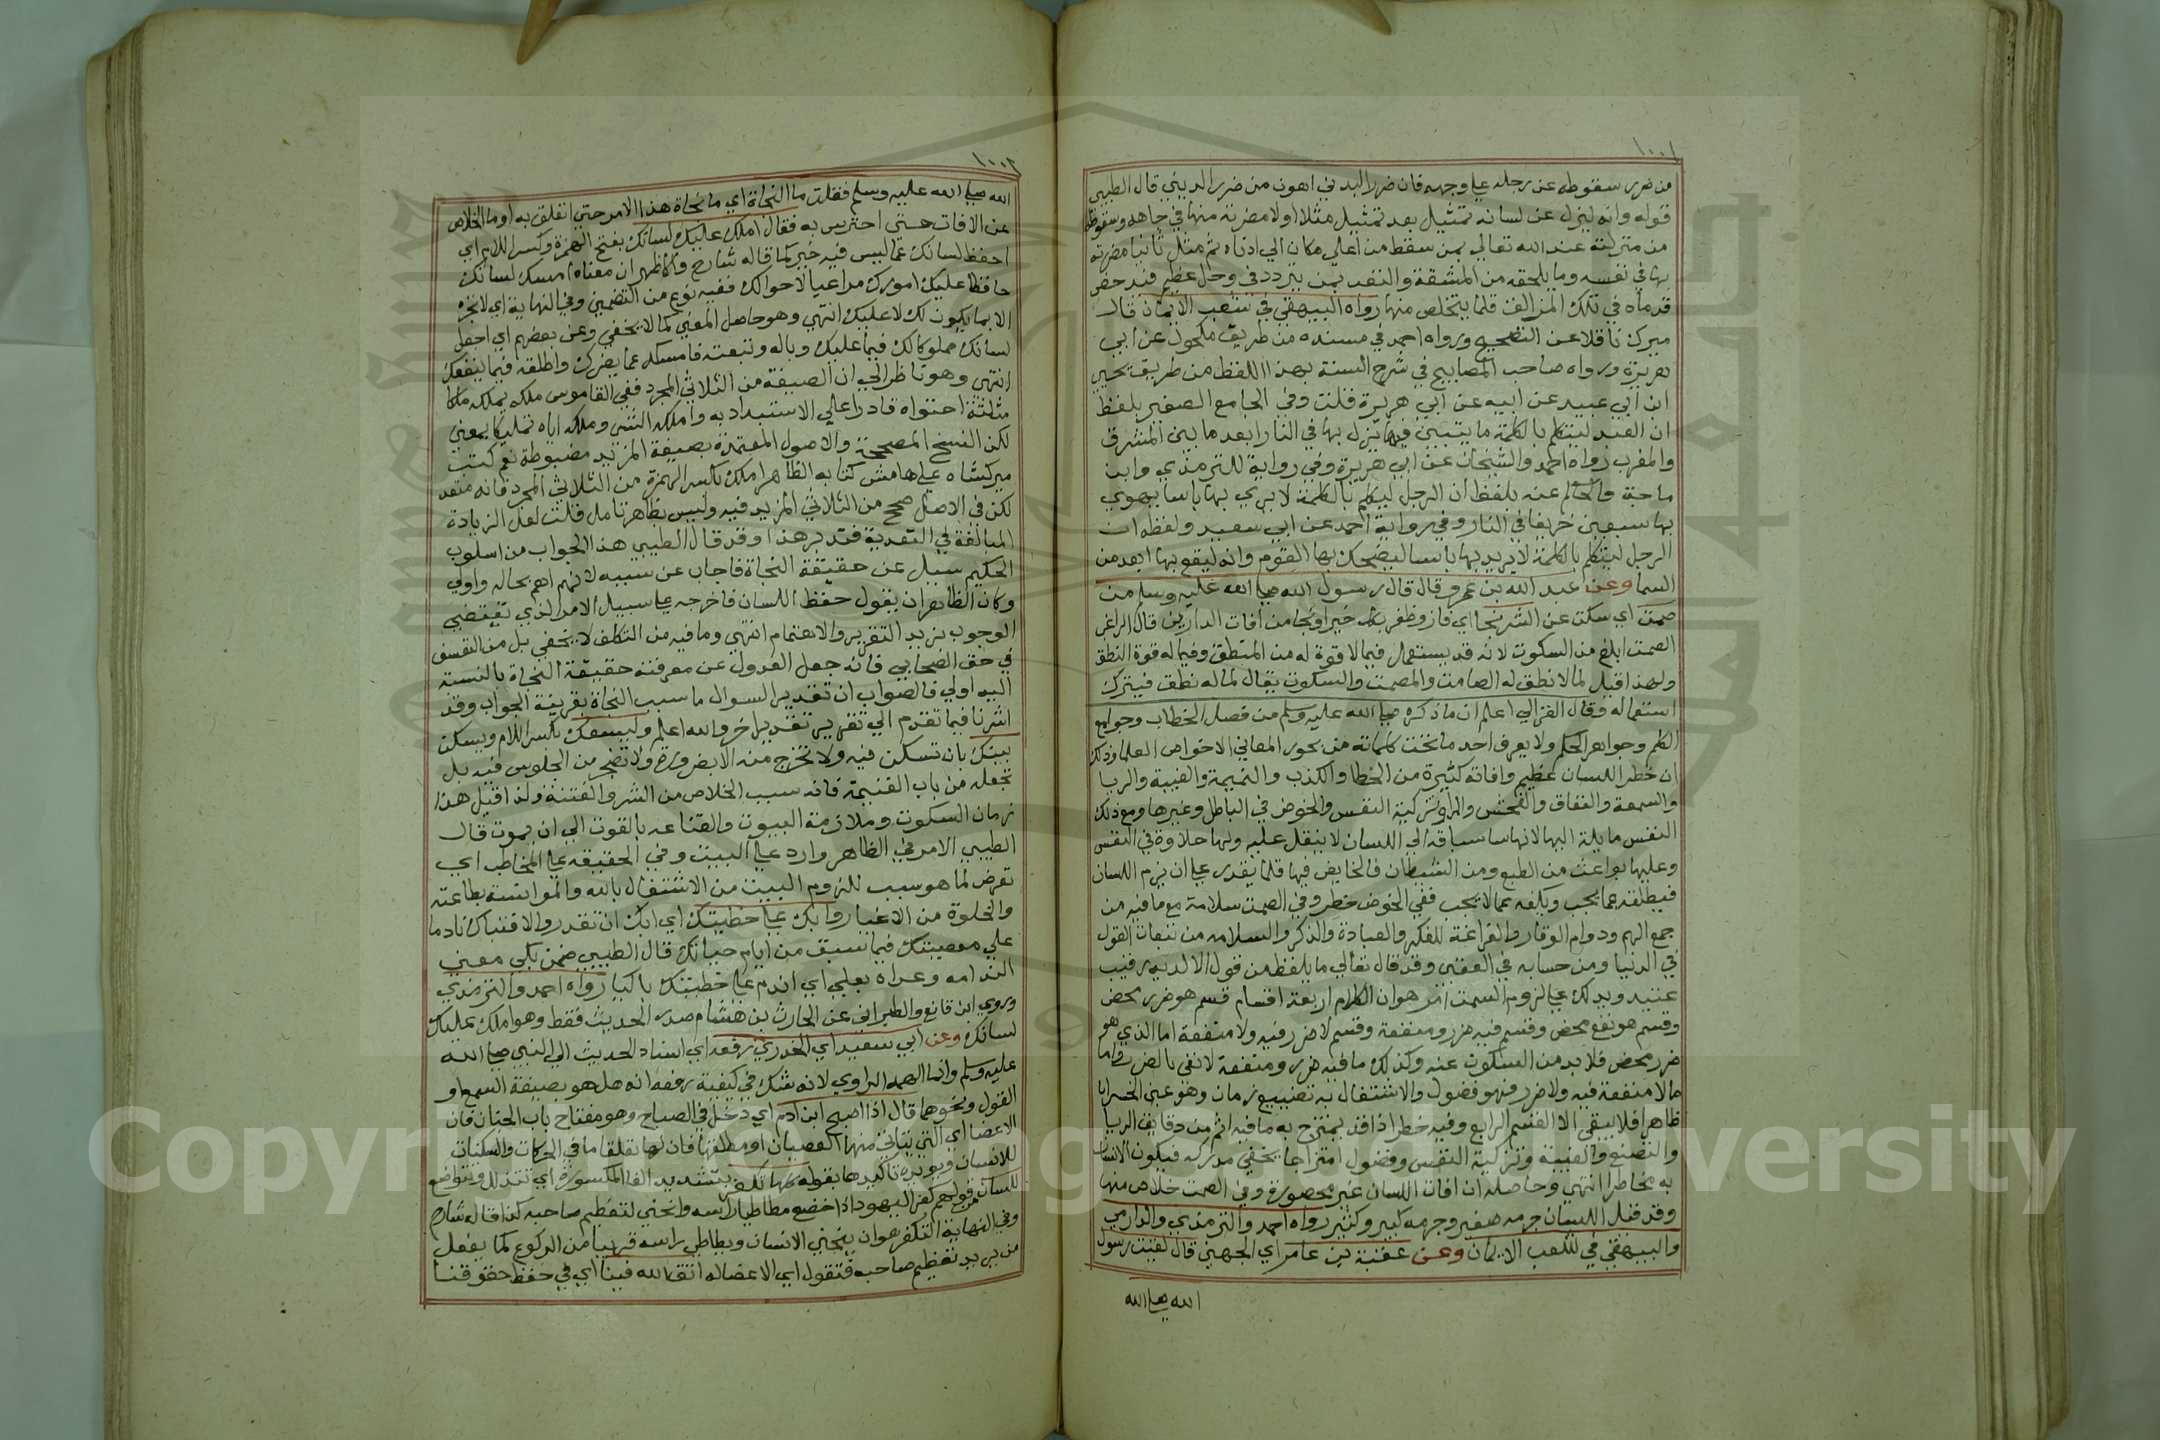 ١٠٠١
من ضرر سقوطه عن رجله على وجهه فان ضرر البدني اهون من ضرر الديني قال الطيبي
قوله وانه ليزل عن لسانه تمثيل بعد تمثيل مثلا اولا مضرته منها في جاهه وسقوطه
من منزلته عند الله تعالى بمن سقط من اعلى مكان الى ادناه ثم مثل ثانيا مضرته
بها في نفسه وما يلحقه من المشقة والتعب بمن يتردد في وحل عظيم فتدحض
قدماه في تلك المزالق فلما يتخلص منها رواه البيهقي في شعب الايمان قال
ميرك ناقلا عن التصحيح ورواه احمد في مسنده من طريق مكحول عن ابي
هريرة ورواه صاحب المصابيح في شرح السنة بهذا اللفظ من طريق يحيى
ابن ابي عبيد عن ابيه عن ابي هريرة قلت وفي الجامع الصغير بلفظ
ان العبد ليتكلم بالكلمة ما يتبين فيها يزل بها في النار ابعد ما بين المشرق
والمغرب رواه احمد والشيخان عن ابي هريرة وفي رواية للترمذي وابن
ماجة والحاكم عنه بلفظ ان الرجل ليتكلم بالكلمة لا يري بها باسا يهوي
بها سبعين خريفا في النار وفي رواية احمد عن ابي سعيد ولفظه ان
الرجل ليتكلم بالكلمة لا يريد بها باسا ليضحك بها القوم وانه ليقع بها ابعد من
السما وعن عبد الله بن عمرو قال قال رسول الله صلى الله عليه وسلم من
صمت اي سكت عن الشر نجا اي فاز وظفر بكل خير او نجا من افات الدارين قال الراغب
الصمت ابلغ من السكوت لانه قد يستعمل فيما لا قوة له من المنطق وفيما له قوة النطق
ولهذا قيل لما لا نطق له الصامت والمصمت والسكوت يقال لما له نطق فيترك
استعماله وقال الغزالي اعلم ان ما ذكره صلى الله عليه وسلم من فصل الخطاب وجوامع
الكلم وجواهر الحكم ولا يعرف احد ما تحت كلماته من بحور المعاني الا خواص العلما وذلك
ان خطر اللسان عظيم وافاته كثيرة من الخطا والكذب والنميمة والغيبة والريا
والسمعة والنفاق والفحش والمرا وتزكية النفس والخوض في الباطل وغيرها ومع ذلك
النفس مايلة اليها لانها سباقة الى اللسان لا يثقل عليه ولها حلاوة في النفس
وعليها بواعث من الطبع ومن الشيطان فالخايض فيها قلما يقدر على ان يزم اللسان
فيطلقه بما يجب ويكفه عما لا يجب ففي الخوض خطر وفي الصمت سلامة مع ما فيه من
جمع الهم ودوام الوقار والفراغة للفكر والعبادة والذكر والسلامه من تبعات القول
في الدنيا ومن حسابه في العقبى وقد قال تعالى ما يلفظ من قول الا لديه رقيب
عتيد ويدلك على لزوم الصمت امر هو ان الكلام اربعة اقسام قسم هو ضرر محض
وقسم هو نفع محض وقسم فيه ضرر ومنفعة وقسم لا ضرر فيه ولا منفعة اما الذي هو
ضرر محض فلا بد من السكوت عنه وكذلك ما فيه ضرر ومنفعة لا تفي بالضرر واما
ما لا منفعة فيه ولا ضرر فهو فضول والاشتغال به تضييع زمان وهو عين الخسران
ظاهرا فلا يبقى الا القسم الرابع وفيه خطر اذ قد يمتزج به ما فيه اثم من دقايق الريا
والتصنع والغيبة وتزكية النفس وفضول امتزاجا يخفى مدركه فيكون الانسان
به مخاطرا انتهى وحاصله ان افات اللسان غير محصورة وفي الصمت خلاص منها
وقد قيل اللسان جرمه صغير وجرمه كبير وكثير رواه احمد والترمذي والدارمي
والبيهقي في شعب الايمان وعن عقبة بن عامر اي الجهني قال لقيت رسول
الله صلى الله
١٠٠٢
الله صلى الله عليه وسلم فقلت ما النجاة اي ما نجاة هذا الامر حتى اتعلق به او ما الخلاص
عن الافات حتى احترس به فقال املك عليك لسانك بفتح الهمزة وكسر اللام اي
احفظ لسانك عما ليس فيه خير كما قاله شارح والاظهر ان معناه امسك لسانك
حافظا عليك امورك مراعيا لاحوالك ففيه نوع من التضمين وفي النهاية اي لا تجره
الا بما يكون لك لا عليك انتهى وهو حاصل المعنى كما لا يخفى وعن بعضهم اي اجعل
لسانك مملوكا لك فيما عليك وباله وتبعته فامسكه عما يضرك واطلقه فيما ينفعك
انتهى وهو ناظر الى ان الصيغة من الثلاثي المجرد ففي القاموس ملكه يملكه ملكا
مثلثة احتواه قادرا على الاستبداد به واملكه الشئ وملكه اياه تمليكا بمعنى
لكن النسخ المصححة والاصول المعتمدة بصيغة المزيد مضبوطة نعم كتب
ميركشاه على هامش كتابه الظاهر املك بكسر الهمزة من الثلاثي المجرد فانه متعد
لكن في الاصل صحح من الثلاثي المزيد فيه وليس بظاهر تامل قلت لعل الزيادة
المبالغة في التعدية فتدبر هذا وقد قال الطيبي هذا الجواب من اسلوب
الحكيم سيل عن حقيقة النجاة فاجاب عن سببه لانهم اهم بحاله واولى
وكان الظاهر ان يقول حفظ اللسان فاخرجه على سبيل الامر الذي يقتضي
الوجوب مزيد التقرير والاهتمام انتهى وما فيه من التكلف لا يخفى بل من التعسف
في حق الصحابي فانه جعل العدول عن معرفة حقيقة النجاة بالنسبة
اليه اولى فالصواب ان تقدير السوال ما سبب النجاة بقرينة الجواب وقد
اشرنا فيما تقدم الى تقرير تقدير اخر والله اعلم وليسعك بكسر اللام ويسكن
بيتك بان تسكن فيه ولا تخرج منه الا لضرورة ولا تضجر من الجلوس فيه بل
تجعله من باب الغنيمة فانه سبب الخلاص من الشر والفتنة ولذا قيل هذا
زمان السكوت وملازمة البيوت والقناعه بالقوت الى ان يموت قال
الطيبي الامر في الظاهر وارد على البيت وفي الحقيقه على المخاطب اي
تعرض لما هو سبب للزوم البيت من الاشتغال بالله والموانسة بطاعته
والخلوة من الاغيار وابك على خطيتك اي ابك ان تقدر والا فتباك نادما
على معصيتك فيما سبق من ايام حياتك قال الطيبي ضمن بكى معنى
الندامه وعداه بعلى اي اندم على خطيتك باكيا رواه احمد والترمذي
وروى ابن قانع والطبراني عن الحارث بن هشام صدر الحديث فقط وهو املك عليك
لسانك وعن ابي سعيد اي الخدري رفعه اي اسناد الحديث الى النبي صلى الله
عليه وسلم وانما ابهمه الراوي لانه شك في كيفية رفعه انه هل هو بصيغة السمع او
القول ونحوهما قال اذا اصبح ابن ادم اي دخل في الصباح وهو مفتاح باب الجنان فان
الاعضا اي التي يتاتى منها العصيان او مطلقها فان لها تعلقا ما في الحركات والسكنات
للانسان ويويده تاكيدها بقوله كلها تكفر بتشديد الفا المكسورة اي تتذلل وتتواضع
للسان من قولهم كفر اليهود اذا خضع مطاطيا راسه وانحنى لتعظيم صاحبه كذا قاله شارح
وفي النهاية التكفر هو ان ينحني الانسان ويطاطي راسه قريبا من الركوع كما يفعل
من يريد تعظيم صاحبه فتقول اي الاعضا له اتق الله فينا اي في حفظ حقوقنا